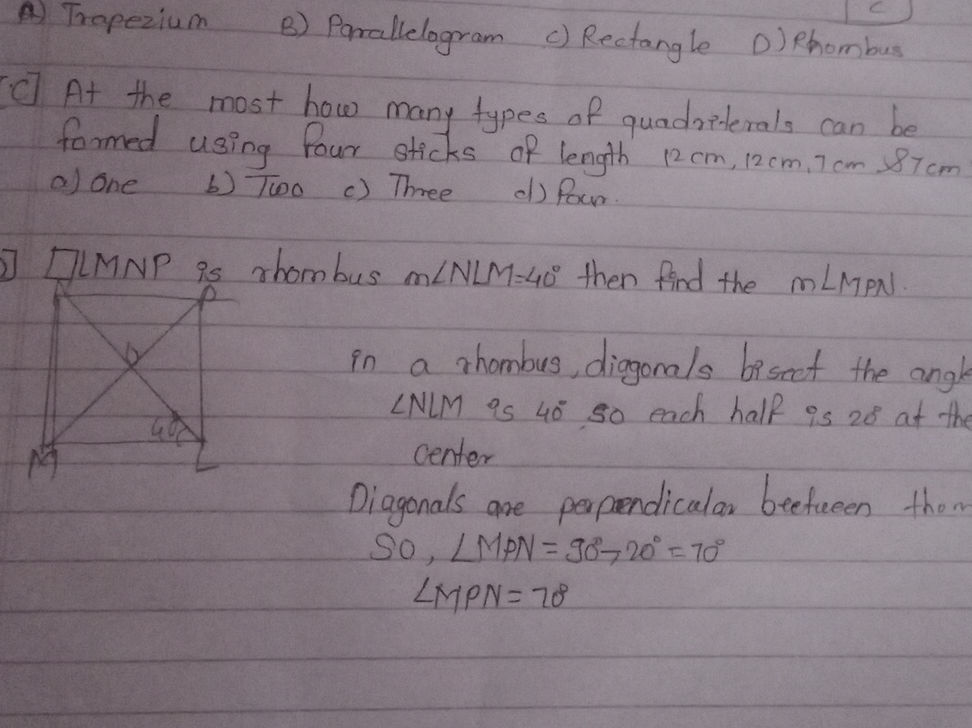 A) Trapezium B) Parallelogram C) Rectangle D) Rhombus
C
[C] At the most how many types of quadrilerals can be
formed using four sticks of length 12 cm, 12 cm, 7 cm & 7 cm
a) One b) Two c) Three d) four.
□LMNP is rhombus m∠NLM=40° then find the m∠MPN.
P
in a rhombus, diagonals bisect the angle
∠NLM is 40 so each half is 20 at the
40
M L
center
Diagonals are perpendicular beetween them
SO, ∠MPN = 90°-20° = 70°
∠MPN = 70